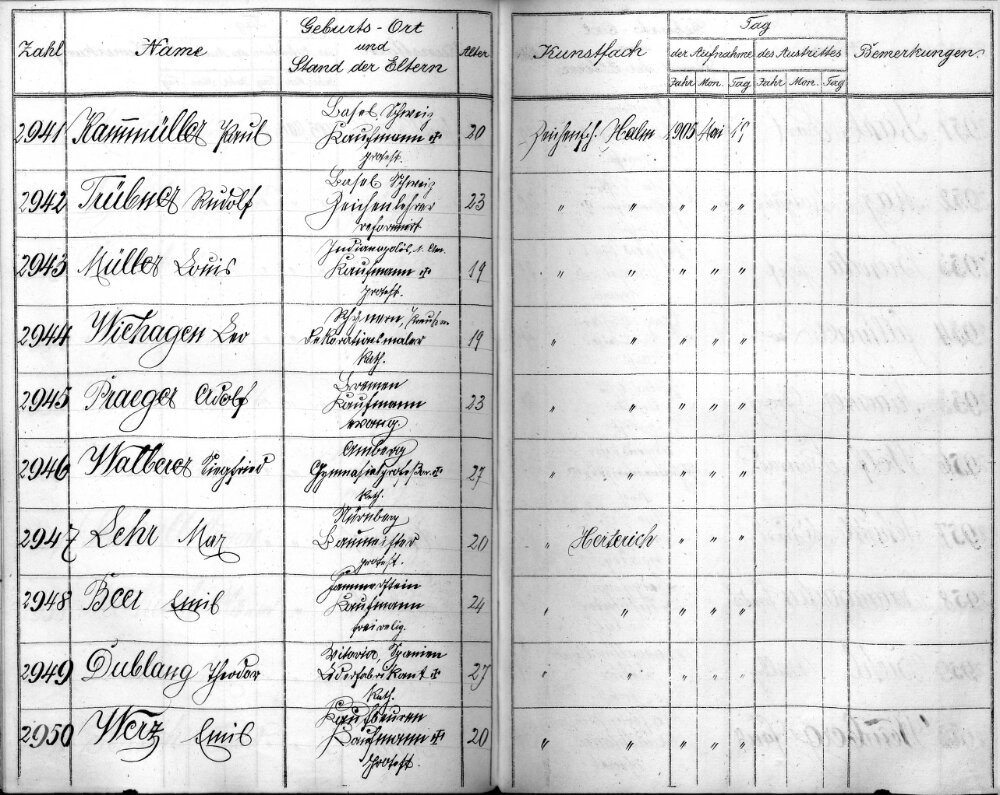 Zahl Name Geburts-Ort und Stand der Eltern Alter Kunstfach Tag der Aufnahme des Austrittes Bemerkungen.
Jahr Mon. Tag Jahr Mon. Tag
2941 Kammüller Paul Basel, Schweiz 20 Zeichensch. Halm 1905 Mai
Kaufmann †
protest.
2942 Trübner Rudolf Basel, Schweiz 23 " " " " "
Zeichenlehrer
reformiert
2943 Müller Louis Indianopolis, N. Am. 19 " " " " "
Kaufmann †
protest.
2944 Wiehagen Leo 19 " " " " "
Dekorationsmaler
kath.
2945 Praeger Adolf Bremen 23 " " " " "
Kaufmann
evang.
2946 Walberer Siegfried Amberg 27 " " " " "
Gymnasialprofessor †
kath.
2947 Lehr Max Nürnberg 20 " Herterich " " "
Baumeister
protest.
2948 Beer Emil Hammerstein 24 " " " " "
Kaufmann
freirelig.
2949 Dublang Theodor Vitoria Spanien 27 " " " " "
Lederfabrikant †
kath.
2950 Werz Emil Kaufbeuren 20 " " " " "
Kaufmann †
protest.